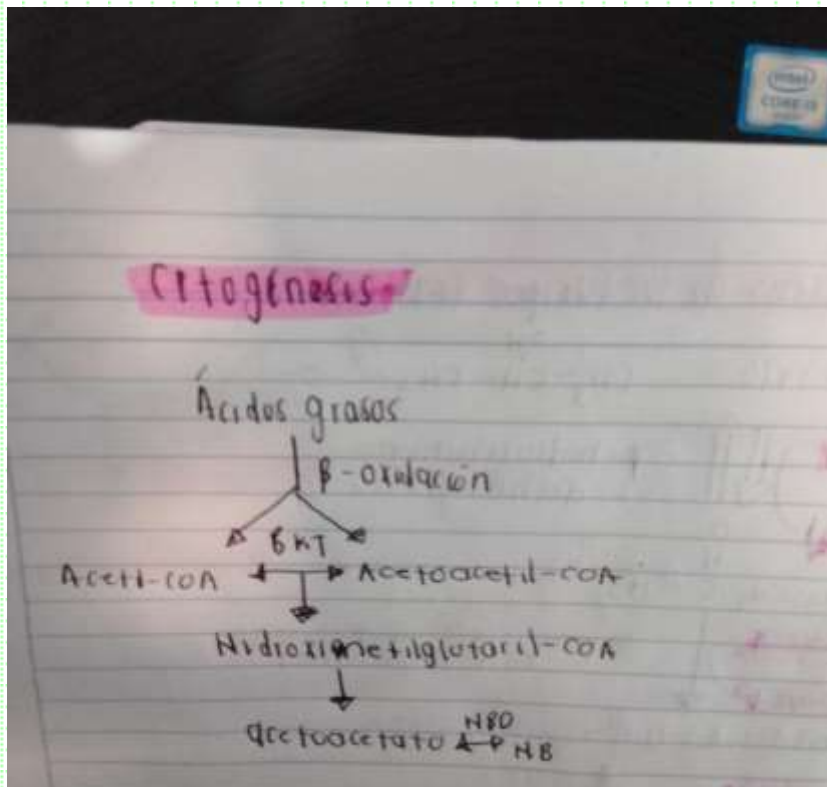 intel
CORE i3
Cetogénesis
Ácidos grasos
β-oxidación
BKT
Acetil-COA Acetoacetil-COA
Hidroximetilglutaril-COA
HBD
acetoacetato HB